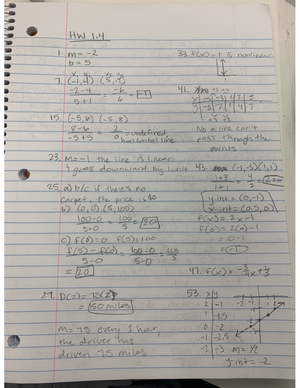 HW 1.4
1. m = -2
b = 5
7. (-1, 4) (5, -7)
-2-4
5+1
= -6
6
= -1
15. (-5, 6) (-5, 8)
8-6
-5+5
= 2
0
= undefined,
horizontal line
23. m = -1 the line is linear
& goes downward by 1 unit
25. a) b/c if there's no
carpet, the price is $0
b) (0,0) (5,100)
100-0
5-0
= 100
5
= 20
c) f(0) = 0 f(5) = 100
f(5) - f(0)
5-0
= 100-0
5-0
= 100
5
= 20
29. D(2) = 75(2)
= 150 miles
m = 75 every 1 hour,
the driver has
driven 75 miles
33. f(x) = 1 is nonlinear
41.
No a line can't
pass through the
points
43. (-1,-3) (1,1)
1+3
1+1
= 4
2
y int = (0,-1)
x-int = (0.5,0)
f(x) = 2x - 1
f(0) = 2(0) - 1
= 0-1
= -1
47. f(x) =
53. x y
-2 -3
m = 1/2
y int = -2